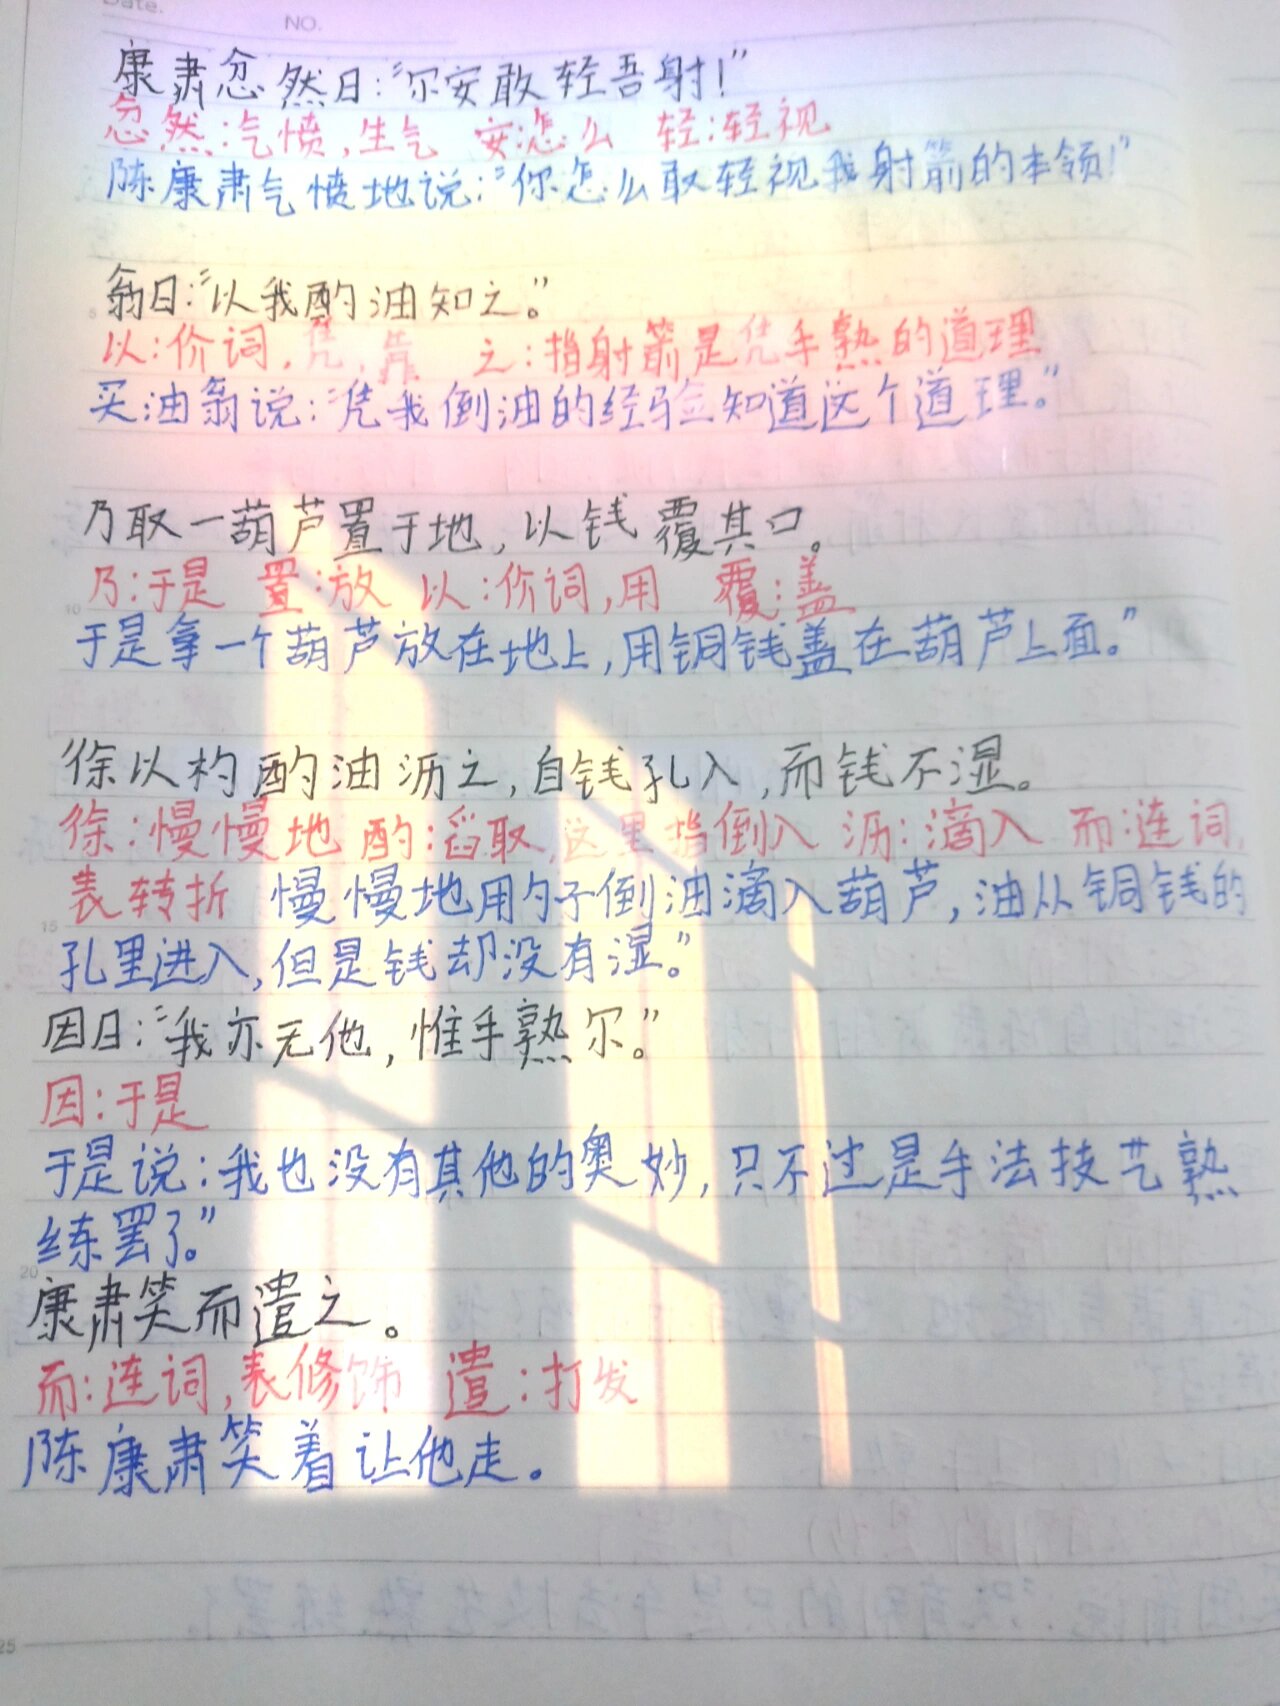 Date.
NO.
康肃忿然曰:"尔安敢轻吾射!"
忿然:气愤,生气 安:怎么 轻:轻视
陈康肃气愤地说:"你怎么敢轻视我射箭的本领!"
翁曰:"以我酌油知之。"
以:介词,凭,靠 之:指射箭是凭手熟的道理
买油翁说:"凭我倒油的经验知道这个道理。"
乃取一葫芦置于地,以钱覆其口。
乃:于是 置:放 以:介词,用 覆:盖
于是拿一个葫芦放在地上,用铜钱盖在葫芦上面。"
徐以杓酌油沥之,自钱孔入,而钱不湿。
徐:慢慢地 酌:舀取,这里指倒入 沥:滴入 而:连词,
表转折 慢慢地用勺子倒油滴入葫芦,油从铜钱的
孔里进入,但是钱却没有湿。"
因曰:"我亦无他,惟手熟尔。"
因:于是
于是说:我也没有其他的奥妙,只不过是手法技艺熟
练罢了。"
康肃笑而遣之。
而:连词,表修饰 遣:打发
陈康肃笑着让他走。